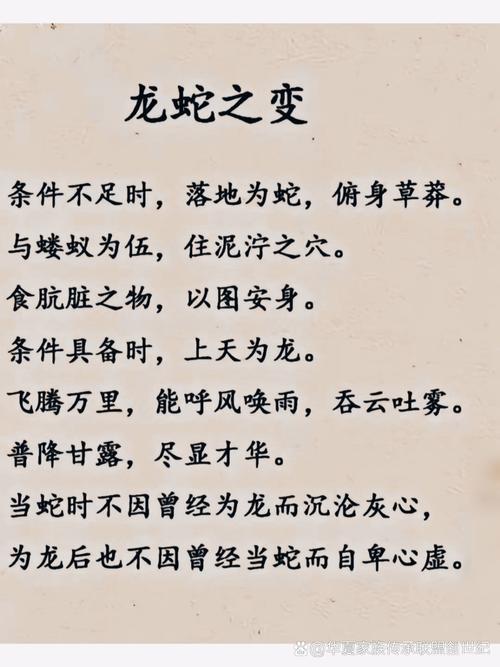 龙蛇之变
条件不足时，落地为蛇，俯身草莽。
与蝼蚁为伍，住泥泞之穴。
食肮脏之物，以图安身。
条件具备时，上天为龙。
飞腾万里，能呼风唤雨，吞云吐雾。
普降甘露，尽显才华。
当蛇时不因曾经为龙而沉沦灰心，
为龙后也不因曾经当蛇而自卑心虚。
@华夏家族传承联盟创世纪